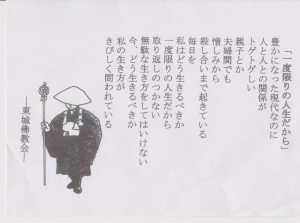 「一度限りの人生だから」
豊かになった現代なのに
人と人との関係が
トゲトゲしい
親子とか
夫婦間でも
憎しみから
殺し合いまで起きている
毎日を
私はどう生きるべきか
一度限りの人生だから
取り返しのつかない
無駄な生き方をしてはいけない
今、どう生きるべきか
私の生き方が
きびしく問われている
―東城佛教会―